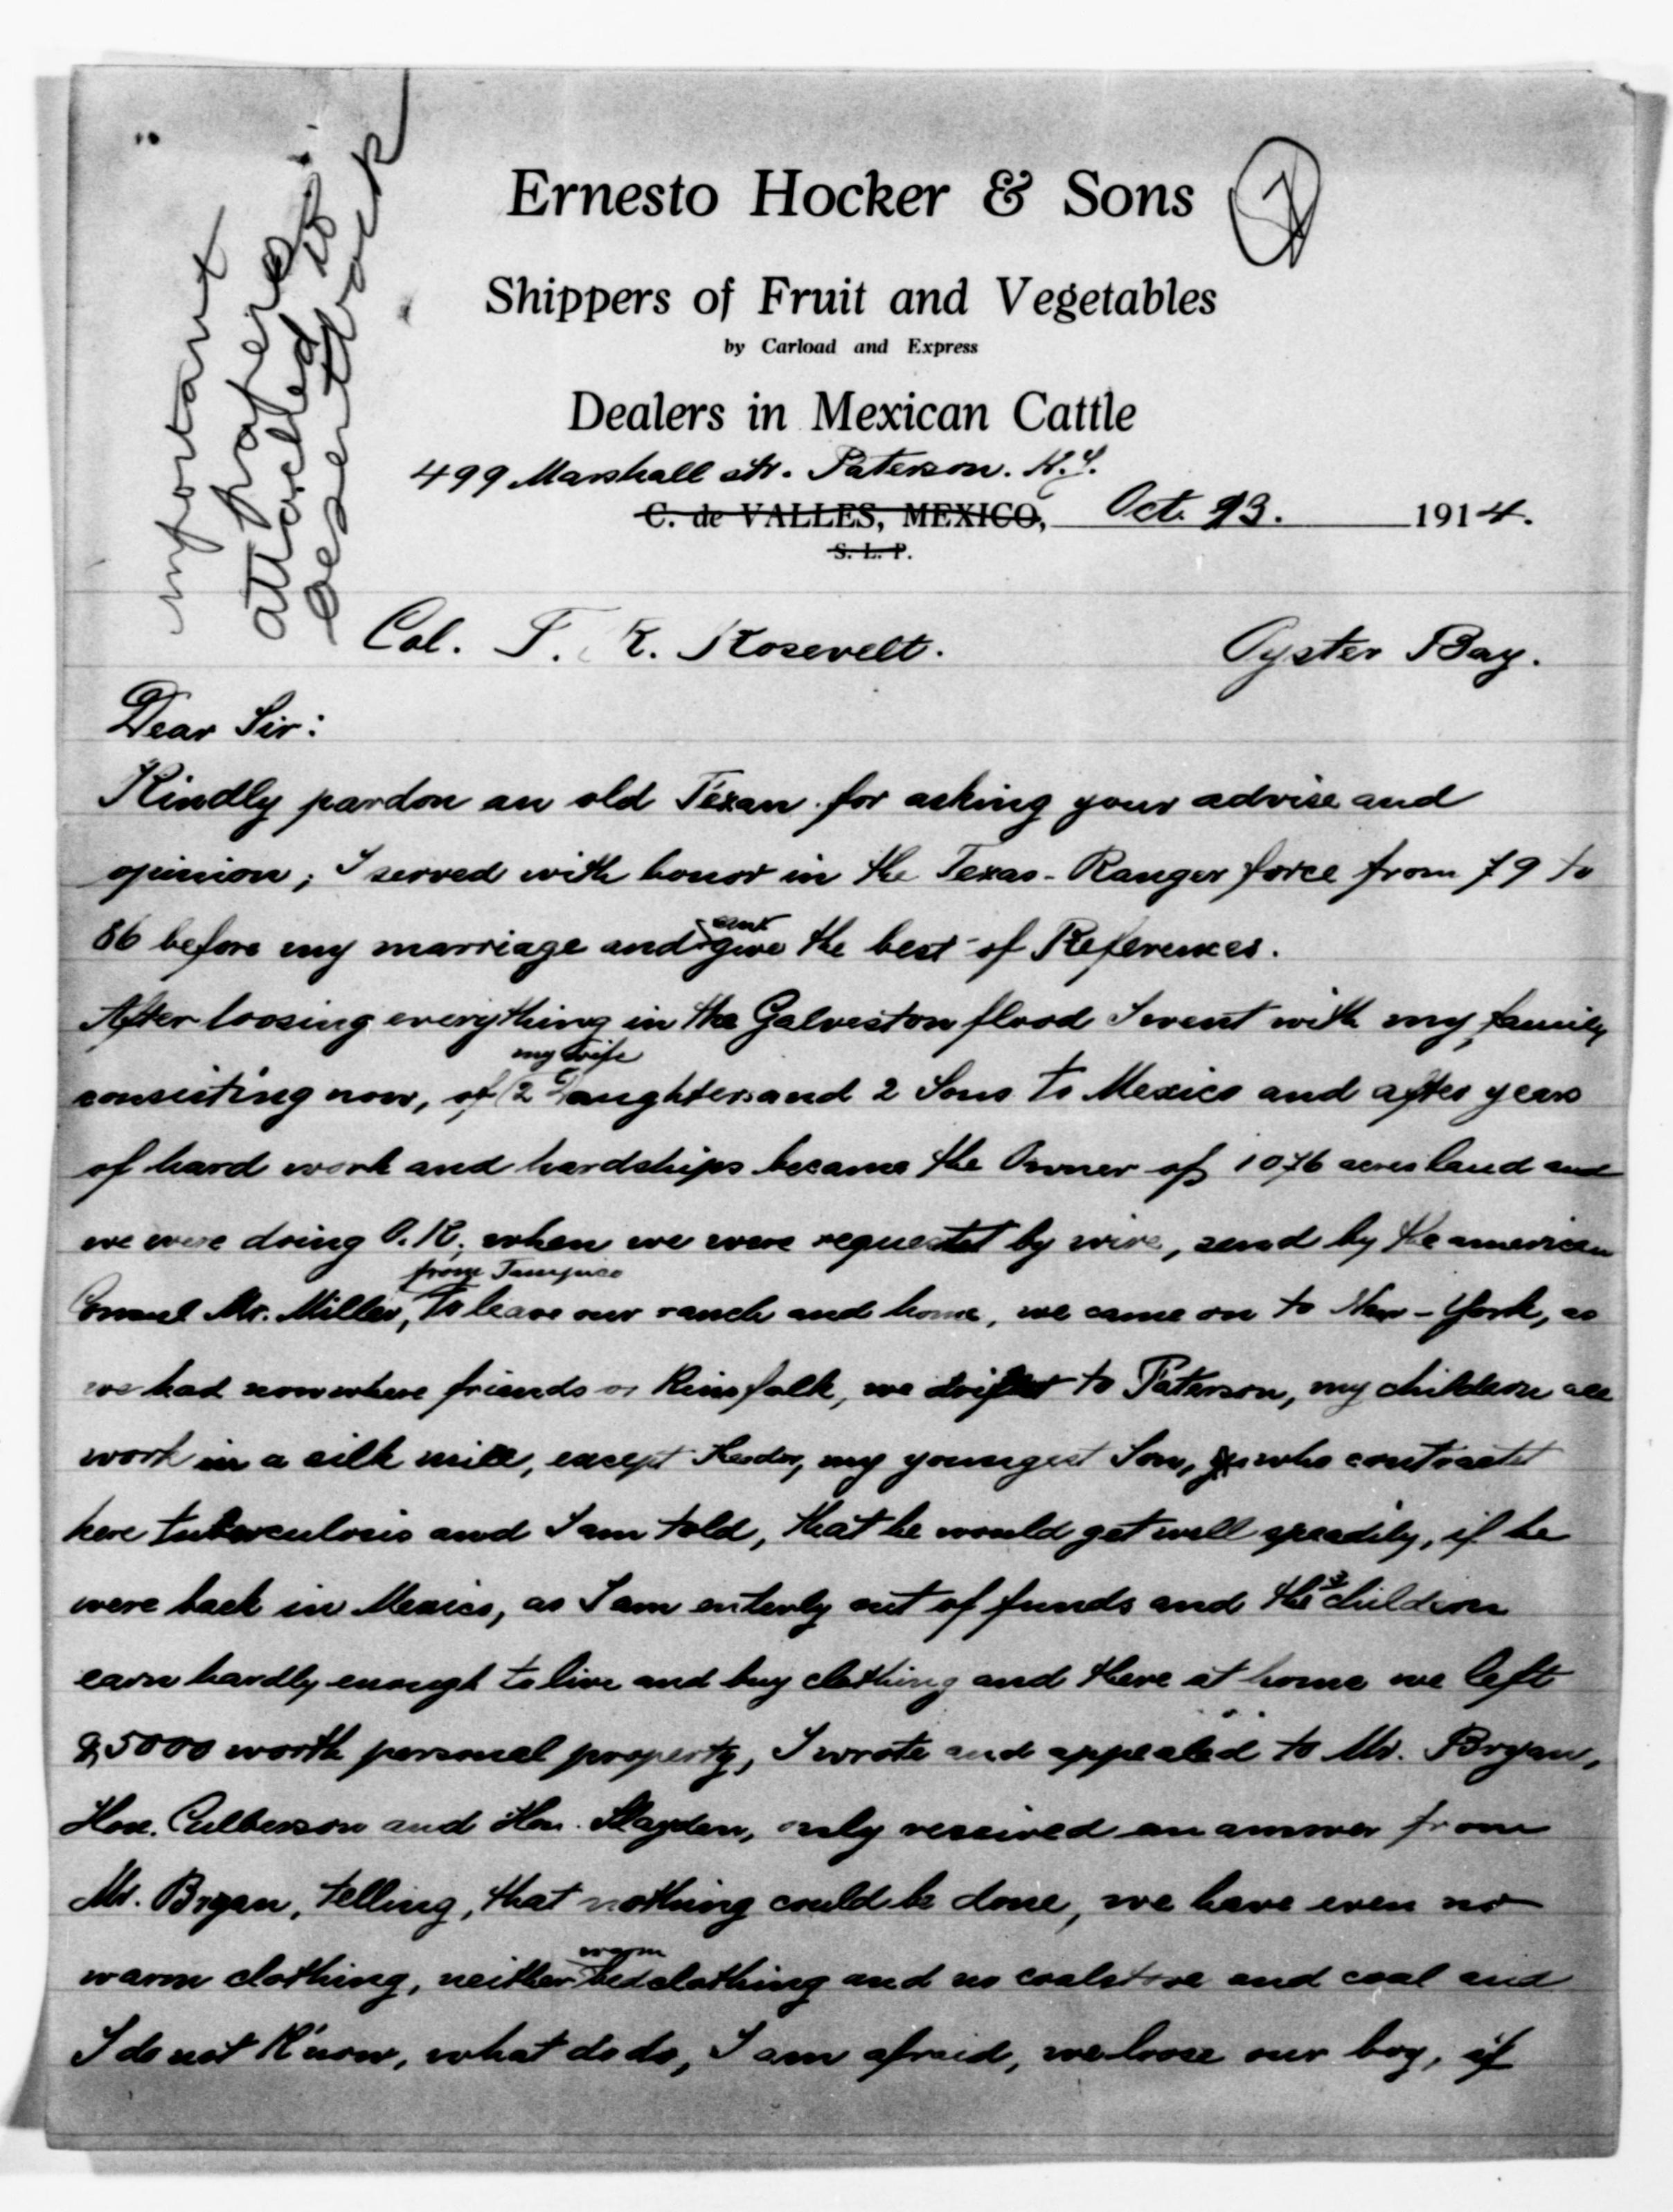 important
papers
attached to
be sent back
Ernesto Hocker & Sons
Shippers of Fruit and Vegetables
by Carload and Express
Dealers in Mexican Cattle
499 Marshall Str. Paterson. N.J.
C. de VALLES, MEXICO, Oct. 23. 1914.
S. L. P.
Col. T. R. Rosevelt. Oyster Bay.
Dear Sir:
Kindly pardon an old Texan for asking your advise and
opinion; I served with honor in the Texas-Ranger force from 79 to
86 before my marriage and can give the best of References.
After loosing everything in the Galveston flood I went with my family
my wife
consisting now, of 2 Daughters and 2 Sons to Mexico and after years
of hard work and hardships became the Owner of 1076 acres land and
we were doing O.K. when we were requestet by wire, send by the american
from Tampico
Consul Mr. Miller, to leave our ranch and home, we came on to New-York, as
we had nowwhere friends or Kinsfolk, we driftet to Paterson, my children all
work in a silk mill, except my youngest Son, who contractet
here tuberculosis and I am told, that he would get well speadily, if he
were back in Mexico, as I am enterly out of funds and the 3 children
earn hardly enough to live and buy clothing and there at home we left
5000 worth personel property, I wrote and appealed to Mr. Bryan,
Hon. Culberson and Hon. Slayden, only received an answer from
Mr. Bryan, telling, that nothing could be done, we have even no
warm
warm clothing, neither bedclothing and no coalstove and coal and
I do not Know, what do do, I am afraid, we loose our boy, if